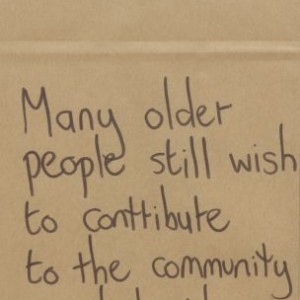 Many older
people still wish
to conttibute
to the community